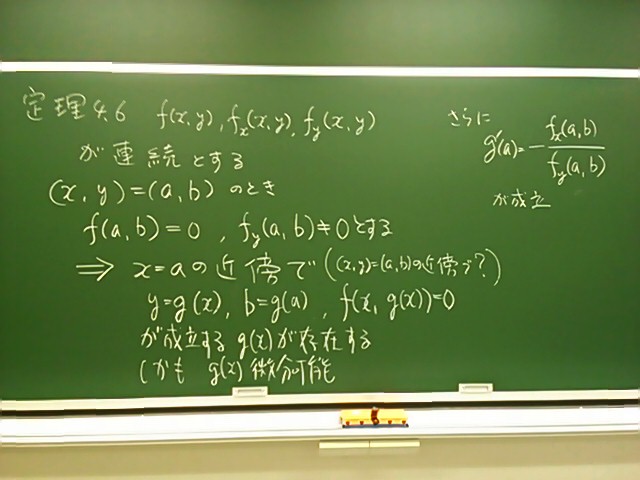 定理4.6 f(x,y), f_x(x,y), f_y(x,y)
が連続とする
(x,y)=(a,b) のとき
f(a,b)=0 , f_y(a,b)≠0とする
⇒ x=aの近傍で((x,y)=(a,b)の近傍で?)
y=g(x), b=g(a) , f(x, g(x))=0
が成立する g(x) が存在する
しかも g(x) 微分可能
さらに
g'(a)=-f_x(a,b)/f_y(a,b)
が成立